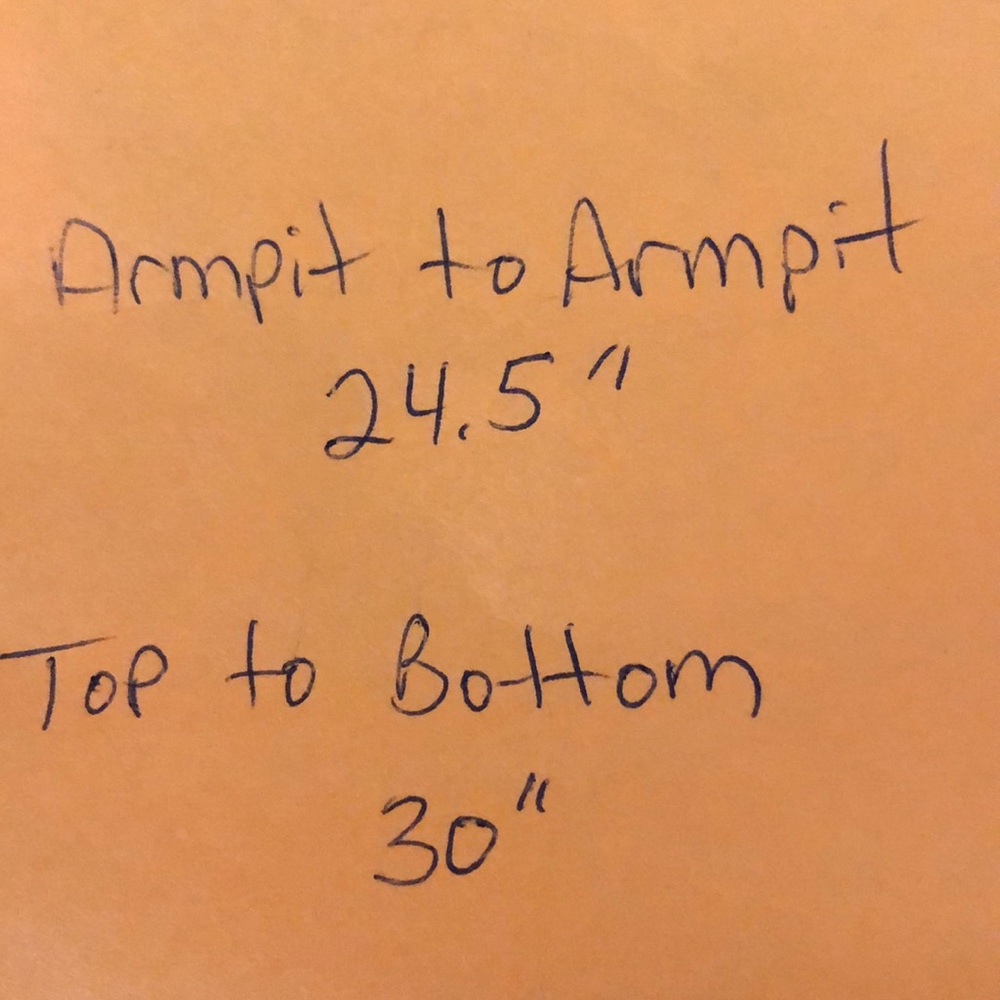 Armpit to Armpit
24.5"
Top to Bottom
30"